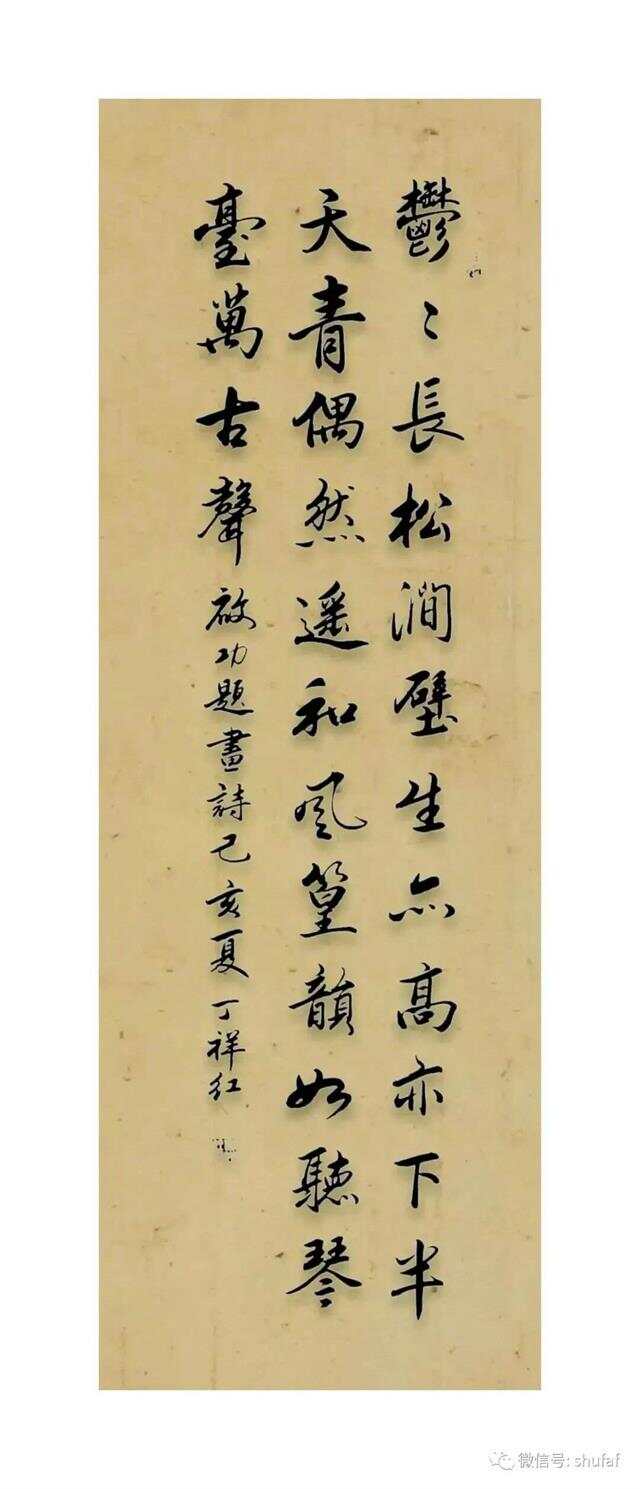 鬱〻長松澗壁生亦高亦下半
天青偶然遥和风篁韻如聽琴
臺萬古聲
啟功題畫詩己亥夏丁祥红
微信号: shufaf